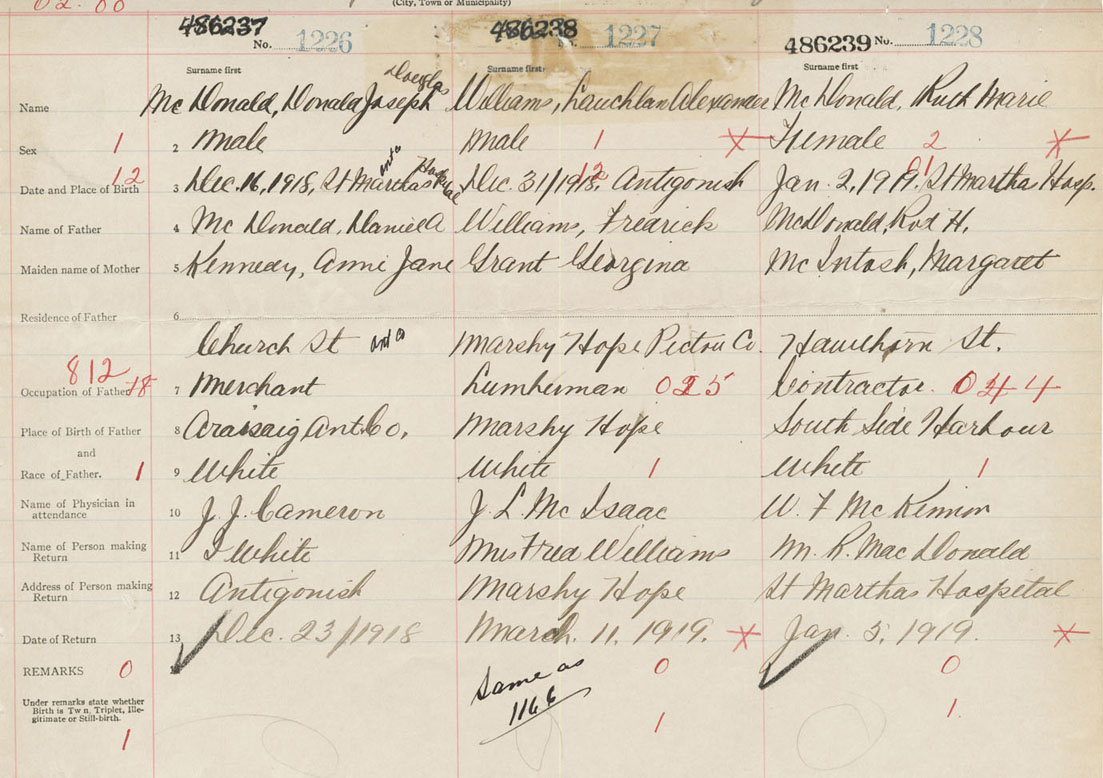 02.00
(City, Town or Municipality)
486237 486238
No. 1226 No. 1227 486239 No. 1228
Surname first Surname first Surname first
Douglas
Name McDonald, Donald Joseph Williams, Lauchlan Alexander McDonald, Ruth Marie
Sex 1 2 Male Male 1 Female 2
12 Ant Co Hospital 12 01
Date and Place of Birth 3 Dec. 16, 1918, St Marthas Dec. 31/1918, Antigonish Jan. 2, 1919. St Marthas Hosp.
Name of Father 4 McDonald, Daniel A Williams, Fredrick McDonald, Rod H.
Maiden name of Mother 5 Kennedy, Annie Jane Grant Georgina McIntosh, Margaret
Residence of Father 6
Church St Ant Co Marshy Hope Pictou Co. Hawthorn St.
812
Occupation of Father 18 7 Merchant Lumberman 025 Contractor. 044
Place of Birth of Father 8 Araisaig Ant. Co, Marshy Hope South Side Harbour
and
Race of Father. 1 9 White White 1 White 1
Name of Physician in
attendance 10 J. J. Cameron J. L. McIsaac W. F McKinnon
Name of Person making
Return 11 I White Mrs Fred Williams M. R. MacDonald
Address of Person making
Return 12 Antigonish Marshy Hope St Marthas Hospital
Date of Return 13 Dec. 23/1918 March. 11. 1919. Jan. 5. 1919.
REMARKS 0 Same as 0 0
1166
Under remarks state whether
Birth is Twin, Triplet, Ille-
gitimate or Still-birth.
1 1 1